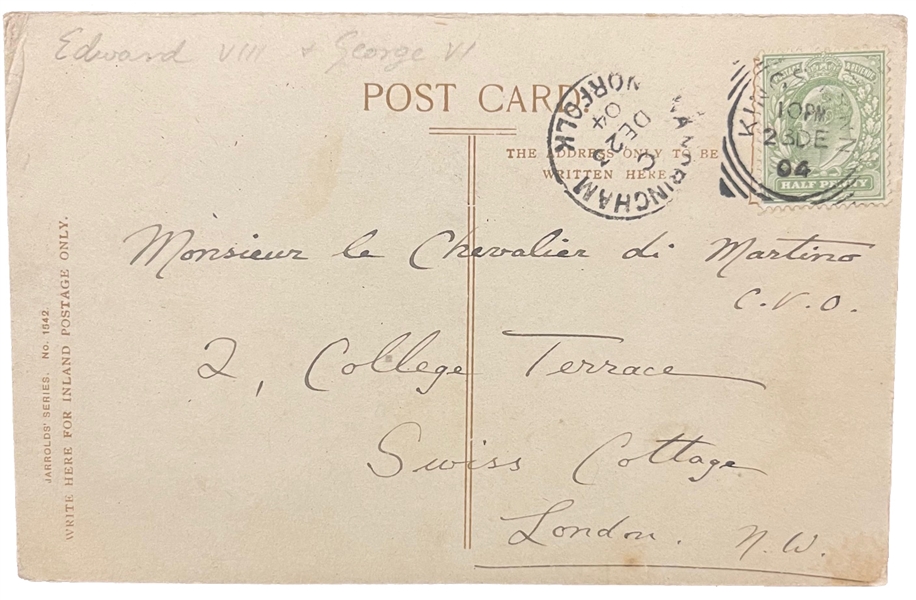 Edward VIII & George VI
POST CARD.
THE ADDRESS ONLY TO BE
WRITTEN HERE.
SANDRINGHAM
NORFOLK
C
DE 23
04
KING'S LYNN
10PM
23DE
04
HALF PENNY
Monsieur le Chevalier di Martino
C.V.O.
2, College Terrace
Swiss Cottage
London. N.W.
JARROLDS' SERIES. No. 1642.
WRITE HERE FOR INLAND POSTAGE ONLY.